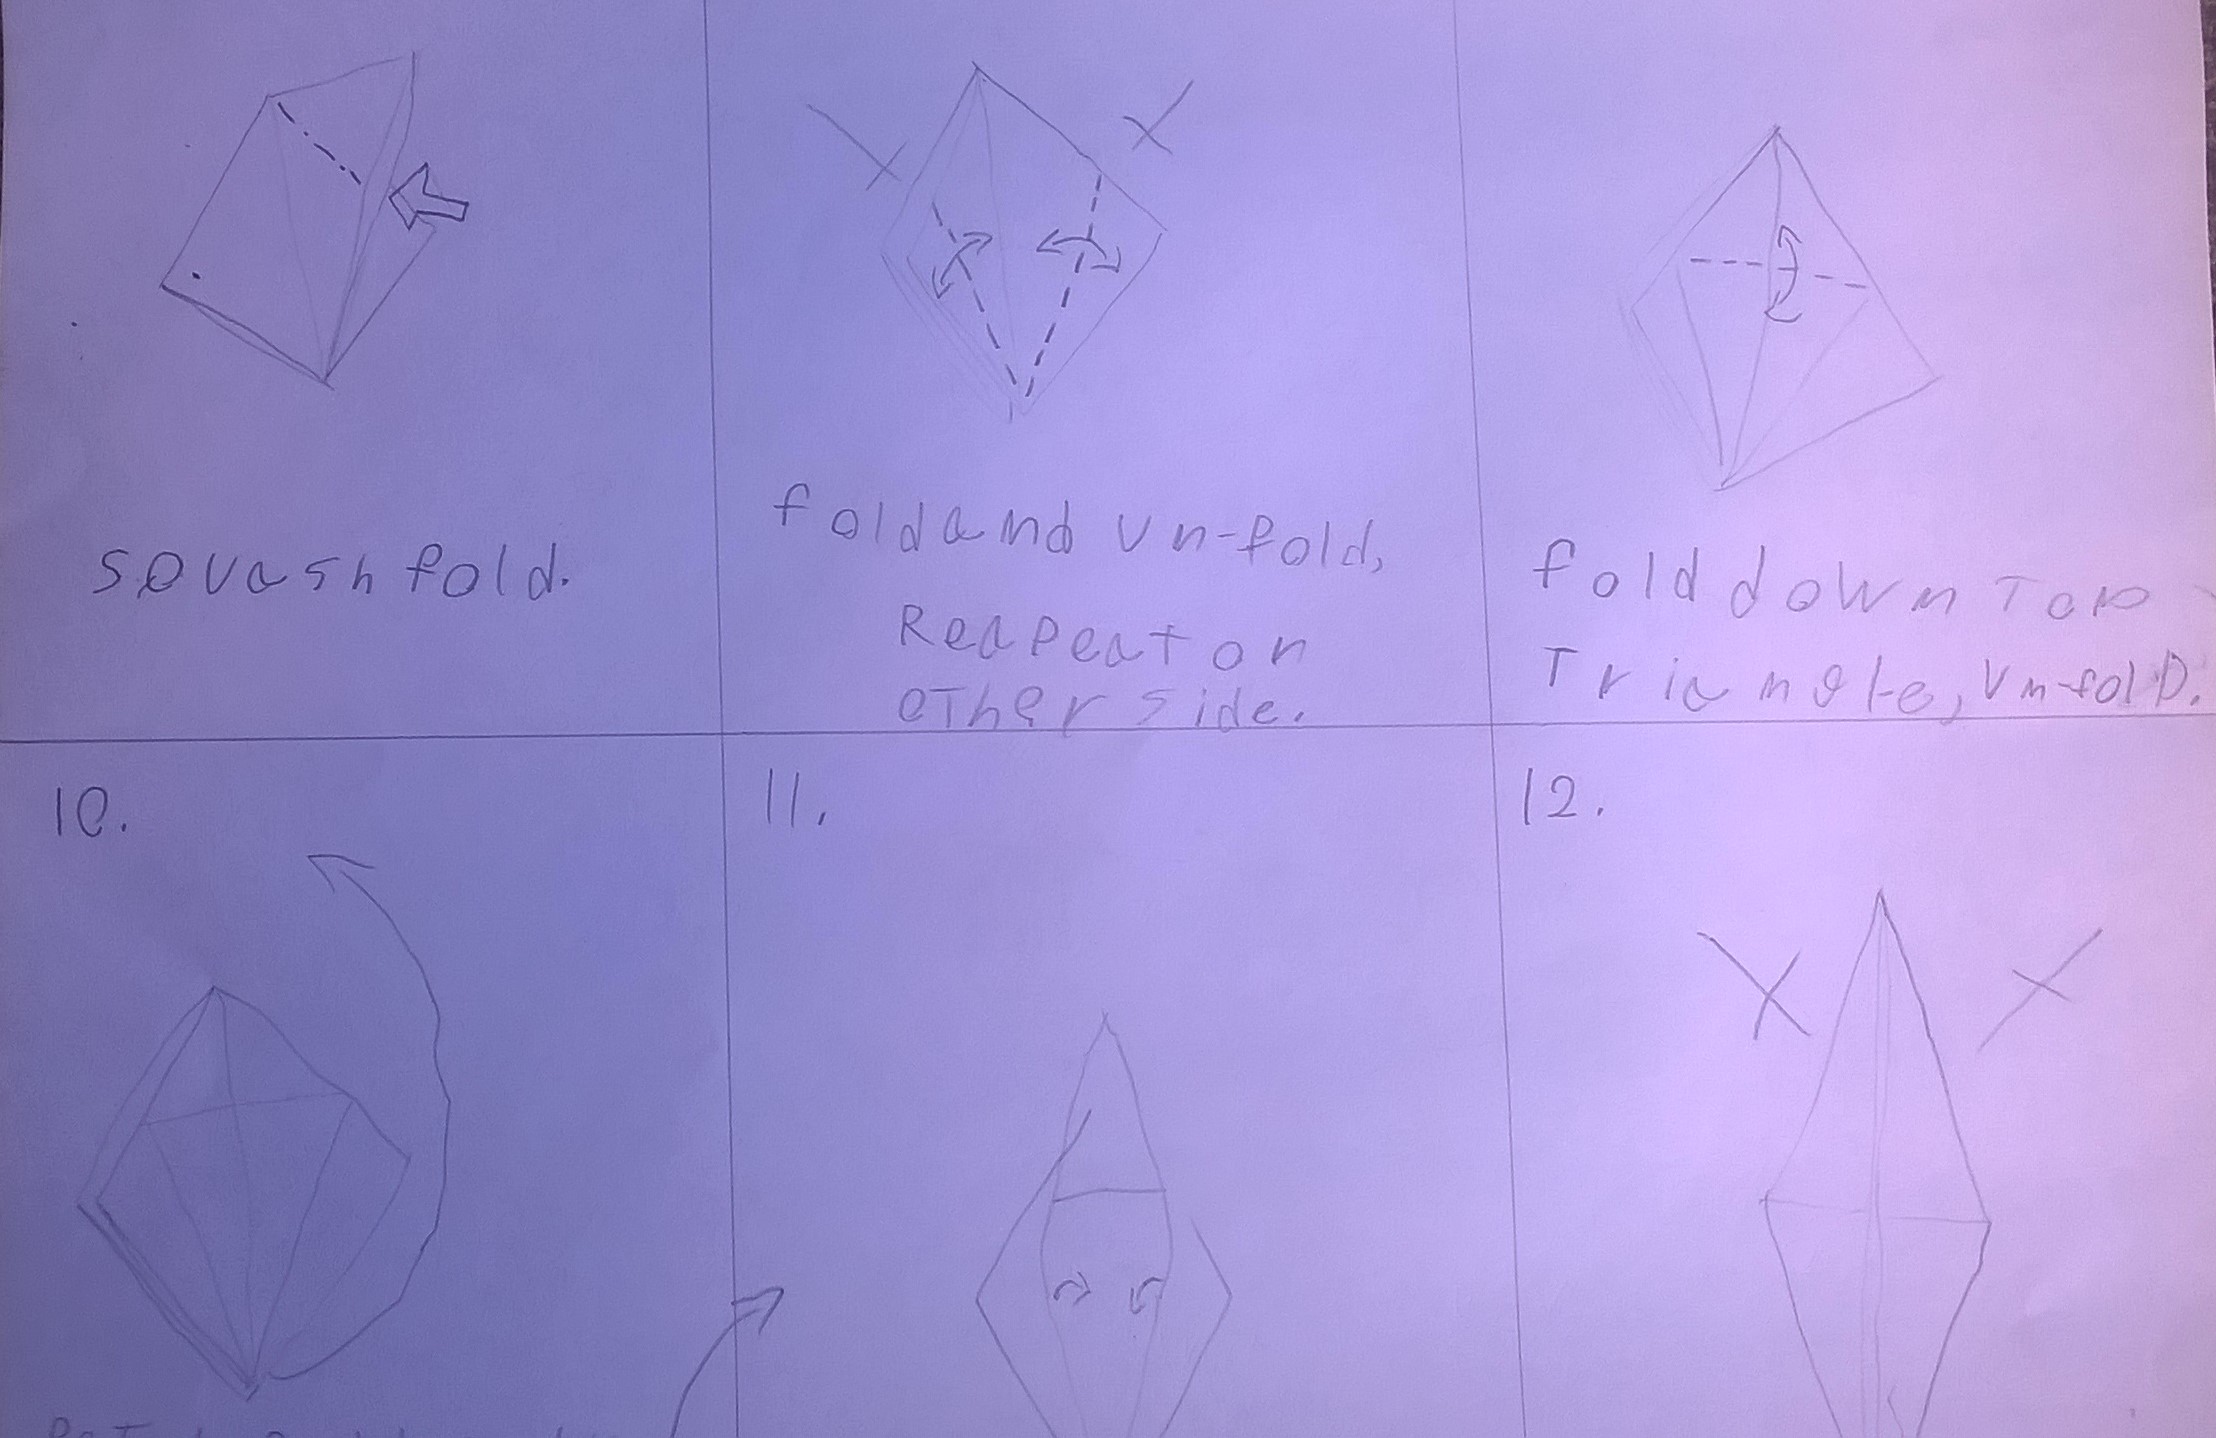 Squash fold.
fold and un-fold,
Reapeat on
other side.
fold down Top
Triangle, un-folD.
10.
11.
12.